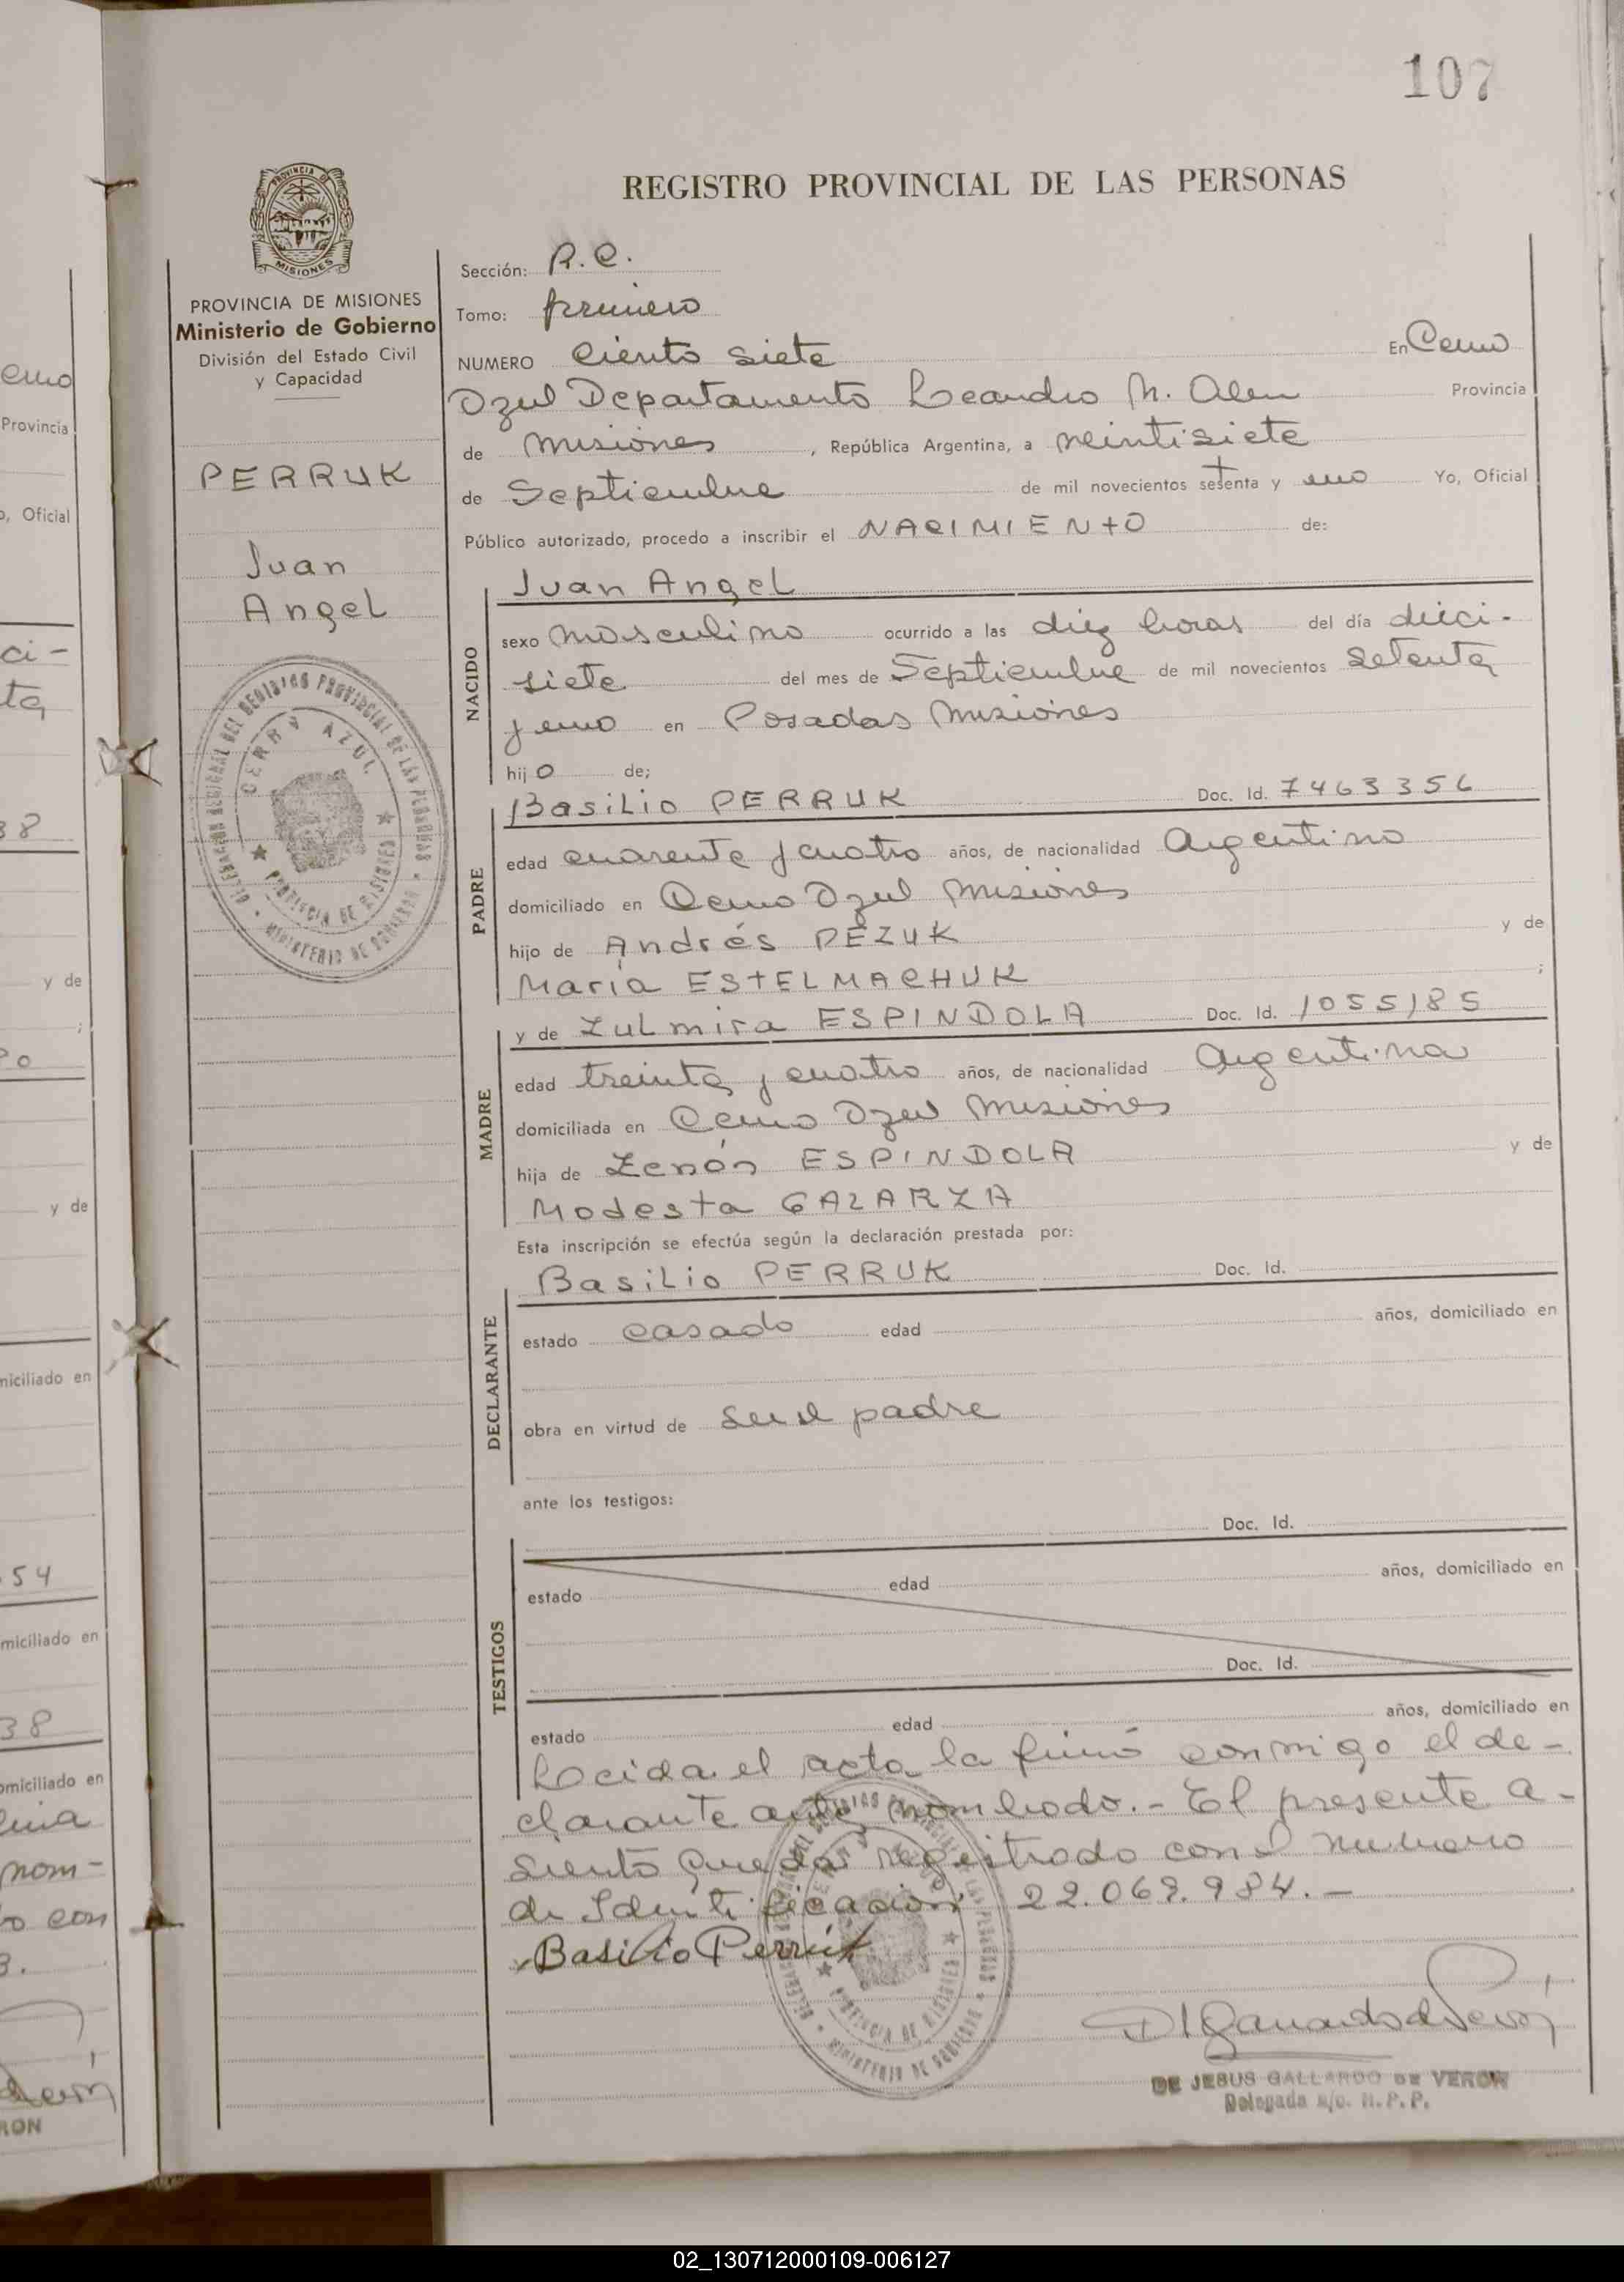 107
REGISTRO PROVINCIAL DE LAS PERSONAS
PROVINCIA DE MISIONES
Ministerio de Gobierno
División del Estado Civil
y Capacidad
PERRUK
Juan
Angel
Sección: R.C.
Tomo: primero
NUMERO Ciento siete En Cerro
Azul Departamento Leandro N. Alem Provincia
de Misiones, República Argentina, a veintisiete
de Septiembre de mil novecientos setenta y uno Yo, Oficial
Público autorizado, procedo a inscribir el NACIMIENTO de:
NACIDO
Juan Angel
sexo masculino ocurrido a las diez horas del día dieci-
siete del mes de Septiembre de mil novecientos setenta
y uno en Posadas Misiones
hijo de;
PADRE
Basilio PERRUK Doc. Id. 7463356
edad cuarenta y cuatro años, de nacionalidad Argentino
domiciliado en Cerro Azul Misiones
hijo de Andrés PEZUK y de
María ESTELMACHUK ;
MADRE
y de Zulmira ESPINDOLA Doc. Id. 1055185
edad treinta y cuatro años, de nacionalidad Argentina
domiciliada en Cerro Azul Misiones
hija de Zenón ESPINDOLA y de
Modesta GALARZA
Esta inscripción se efectúa según la declaración prestada por:
DECLARANTE
Basilio PERRUK Doc. Id.
estado casado edad años, domiciliado en
obra en virtud de ser el padre
ante los testigos:
TESTIGOS
Doc. Id.
estado edad años, domiciliado en
Doc. Id.
estado edad años, domiciliado en
Leida el acta la firmó conmigo el de-
clarante antes nombrado.- El presente a-
siento queda registrado con el numero
de Identificación 22.069.984.-
Basilio Perruk
DE JESUS GALLARDO DE VERON
Delegada a/c. R.P.P.
02_130712000109-006127